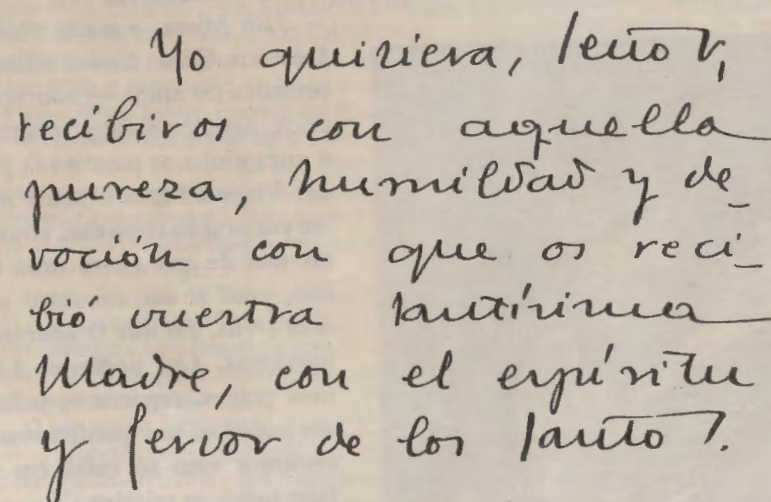 Yo quisiera, Señor,
recibiros con aquella
pureza, humildad y de-
voción con que os reci-
bió vuestra santísima
Madre, con el espíritu
y fervor de los santos.